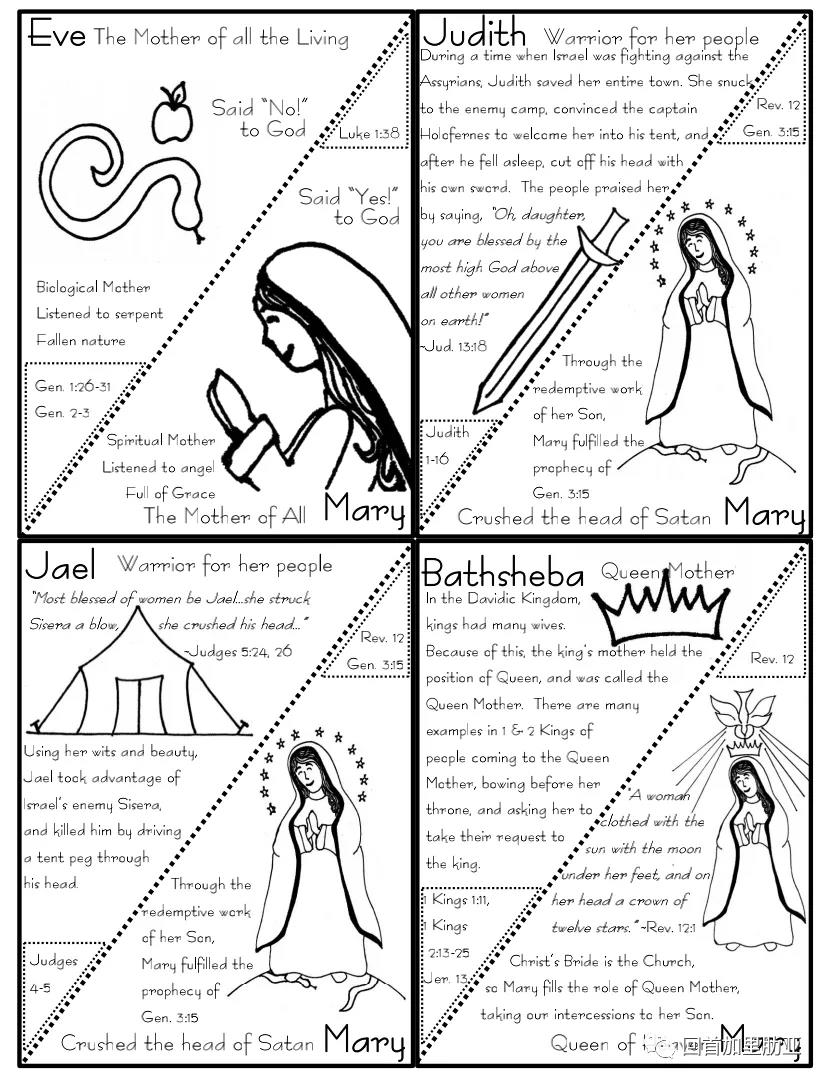 Eve The Mother of all the Living
Said "No!"
to God
Luke 1:38
Said "Yes!"
to God
Biological Mother
Listened to serpent
Fallen nature
Gen. 1:26-31
Gen. 2-3
Spiritual Mother
Listened to angel
Full of Grace
The Mother of All Mary
Judith Warrior for her people
During a time when Israel was fighting against the
Assyrians, Judith saved her entire town. She snuck
to the enemy camp, convinced the captain
Holofernes to welcome her into his tent, and
after he fell asleep, cut off his head with
his own sword. The people praised her
by saying, "Oh, daughter,
you are blessed by the
most high God above
all other women
on earth!"
~Jud. 13:18
Rev. 12
Gen. 3:15
Through the
redemptive work
of her Son,
Mary fulfilled the
prophecy of
Gen. 3:15
Judith
1-16
Crushed the head of Satan Mary
Jael Warrior for her people
"Most blessed of women be Jael...she struck
Sisera a blow, she crushed his head..."
~Judges 5:24, 26
Rev. 12
Gen. 3:15
Using her wits and beauty,
Jael took advantage of
Israel's enemy Sisera,
and killed him by driving
a tent peg through
his head.
Through the
redemptive work
of her Son,
Mary fulfilled the
prophecy of
Gen. 3:15
Judges
4-5
Crushed the head of Satan Mary
Bathsheba Queen Mother
In the Davidic Kingdom,
kings had many wives.
Because of this, the king's mother held the
position of Queen, and was called the
Queen Mother. There are many
examples in 1 & 2 Kings of
people coming to the Queen
Mother, bowing before her
throne, and asking her to
take their request to
the king.
Rev. 12
"A woman
clothed with the
sun with the moon
under her feet, and on
her head a crown of
twelve stars." ~Rev. 12:1
1 Kings 1:11,
1 Kings
2:13-25
Jer. 13
Christ's Bride is the Church,
so Mary fills the role of Queen Mother,
taking our intercessions to her Son.
Queen of Mary
回首加里肋亚